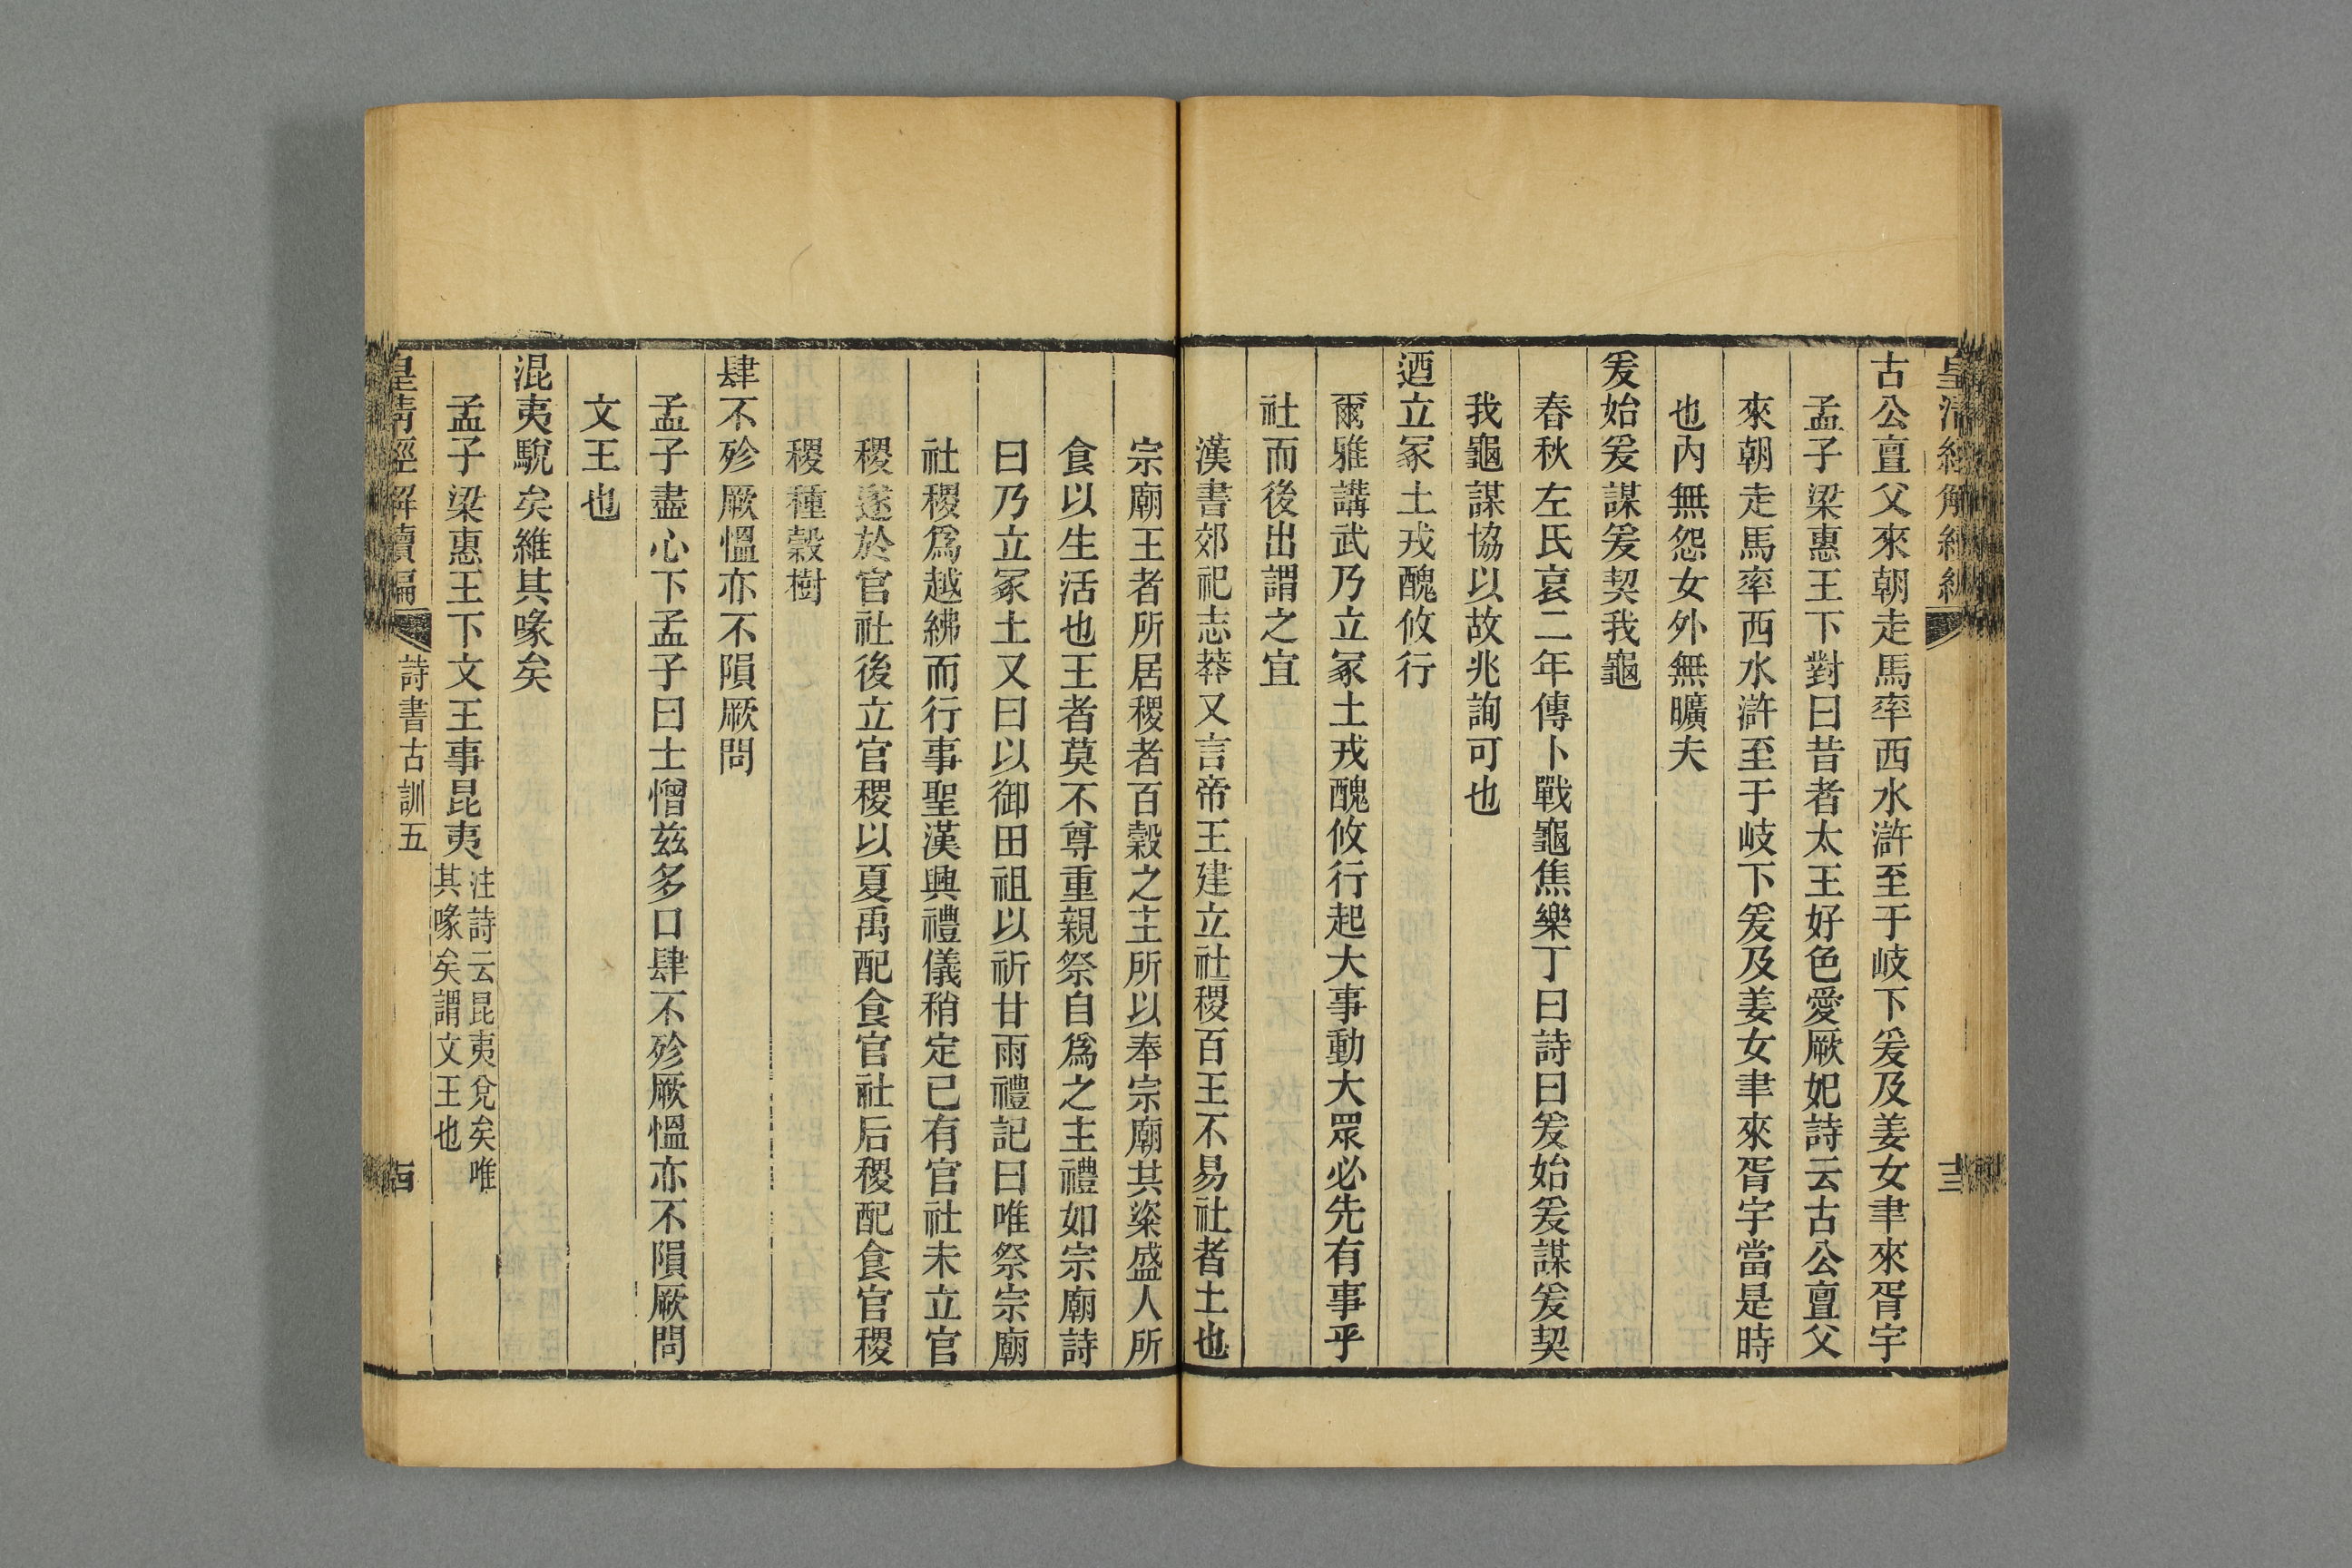 古公亶父來朝走馬率西水滸至于岐下爰及姜女聿來胥宇
孟子梁惠王下對曰昔者太王好色愛厥妃詩云古公亶父
來朝走馬率西水滸至于岐下爰及姜女聿來胥宇當是時
也內無怨女外無曠夫
爰始爰謀爰契我龜
春秋左氏哀二年傳卜戰龜焦樂丁曰詩曰爰始爰謀爰契
我龜謀協以故兆詢可也
迺立冢土戎醜攸行
爾雅講武乃立冢土戎醜攸行起大事動大眾必先有事乎
社而後出謂之宜
漢書郊祀志莽又言帝王建立社稷百王不易社者土也
宗廟王者所居稷者百穀之主所以奉宗廟共粢盛人所
食以生活也王者莫不尊重親祭自爲之主禮如宗廟詩
曰乃立冢土又曰以御田祖以祈甘雨禮記曰唯祭宗廟
社稷爲越紼而行事聖漢興禮儀稍定已有官社未立官
稷遂於官社後立官稷以夏禹配食官社后稷配食官稷
稷種穀樹
肆不殄厥慍亦不隕厥問
孟子盡心下孟子曰士憎茲多口肆不殄厥慍亦不隕厥問
文王也
混夷駾矣維其喙矣
孟子梁惠王下文王事昆夷注詩云昆夷兌矣唯其喙矣謂文王也
皇清經解續編 詩書古訓五